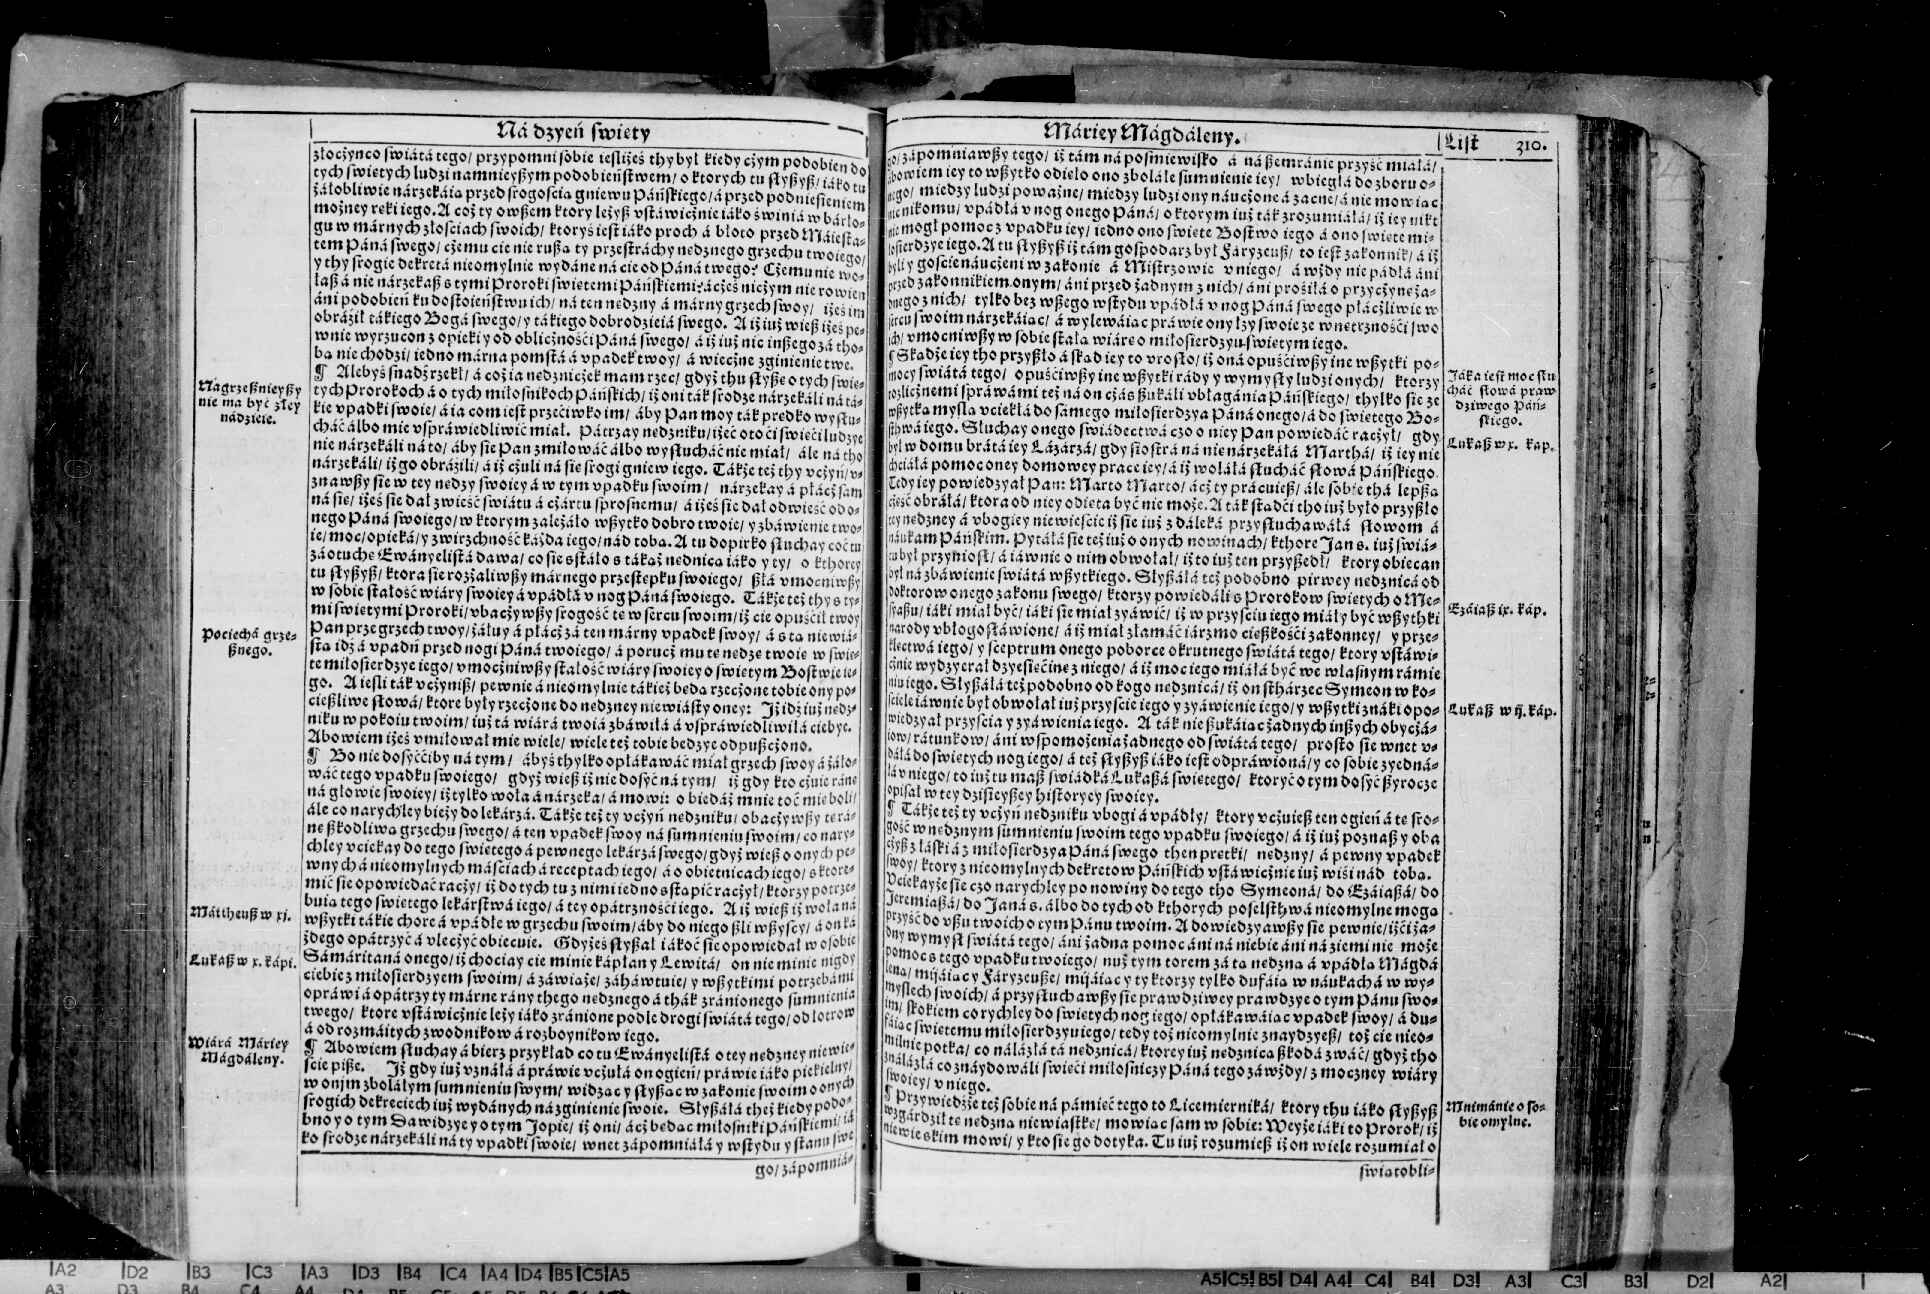 Ná dzyeń swiety
złocżyńco swiátá tego/ przypomni sobie iesliżeś thy był kiedy cżym podobien do
tych swietych ludzi namnieyßym podobieństwem/ o ktorych tu słyßyß/ iáko tu
żáłobliwie nárzekáią przed srogoscią gniewu Páńskiego/ á przed podniesieniem
możney ręki iego. A coż ty owßem ktory leżyß vstáwicżnie iáko swiniá w barło-
gu w márnych złosciach swoich/ ktoryś iest iáko proch á błoto przed Máiestá-
tem Páná swego/ cżemu cie nie rußa ty przestráchy nędznego grzechu twoiego/
y thy srogie dekretá nieomylnie wydáne ná cie od Páná twego? Cżemu nie wo-
łaß á nie nárzekaß s tymi Proroki swietemi Páńskiemi? ácżeś nicżym nie rowien
áni podobień ku dostoieństwu ich/ ná ten nędzny á márny grzech swoy/ iżeś im
obráźił tákiego Bogá swego/ y tákiego dobrodzieiá swego. A iż iuż wieß iżeś pe-
wnie wyrzucon z opieki y od oblicżnośći Páná swego/ á iż iuż nic inßego zá tho-
bą nie chodzi/ iedno márna pomstá á vpadek twoy/ á wiecżne zginienie twe.
¶ Alebyś snadź rzekł/ á coż ia nędznicżek mam rzec/ gdyż thu słyßę o tych swie-
tych Prorokoch á o tych miłosnikoch Páńskich/ iż oni ták srodze nárzekáli ná tá-
kie vpadki swoie/ á ia com iest przećiwko im/ áby Pan moy ták prędko wysłu-
cháć álbo mie vspráwiedliwić miał. Pátrzay nędzniku/ iżeć otoći swieći ludzye
nie nárzekáli ná to/ áby sie Pan zmiłowáć álbo wysłucháć nie miał/ ále ná tho
nárzekáli/ iż go obráźili/ á iż cżuli ná sie srogi gniew iego. Tákże też thy vcżyń/ v-
znawßy sie w tey nędzy swoiey á w tym vpadku swoim/ nárzekay á płácż sam
ná sie/ iżeś sie dał zwieść swiátu á cżártu sprosnemu/ á iżeś sie dał odwieść od o-
nego Páná swoiego/ w ktorym záleżáło wßytko dobro twoie/ y zbáwienie two-
ie/ moc/ opieká/ y zwirzchność káżda iego/ nád tobą. A tu dopirko słuchay coć tu
zá otuchę Ewányelistá dawa/ co sie sstáło s tákąż nędnicą iáko y ty/ o kthorey
tu słyßyß/ ktora sie rozżaliwßy márnego przestępku swoiego/ ßłá vmocniwßy
w sobie stałość wiáry swoiey á vpádłá v nog Páná swoiego. Tákże też thy s ty-
mi swietymi Proroki/ vbacżywßy srogość tę w sercu swoim/ iż cie opuśćił twoy
Pan prze grzech twoy/ żáłuy á płácż zá ten márny vpadek swoy/ á s tą niewiá-
stą idź á vpádń przed nogi Páná twoiego/ á porucż mu tę nędzę twoię w swie-
te miłosierdzye iego/ vmocżniwßy stałość wiáry swoiey o swietym Bostwie ie-
go. A iesli ták vcżyniß/ pewnie á nieomylnie tákież bedą rzecżone tobie ony po-
ćießliwe słowá/ ktore były rzecżone do nędzney niewiásty oney: Iż idź iuż nędz-
niku w pokoiu twoim/ iuż tá wiárá twoiá zbáwiłá á vspráwiedliwiłá ciebye.
Abowiem iżeś vmiłował mie wiele/ wiele też tobie bedzye odpußcżono.
¶ Bo nie dosyććiby ná tym/ ábyś thylko opłákawáć miał grzech swoy á żáło-
wáć tego vpadku swoiego/ gdyż wieß iż nie dosyć ná tym/ iż gdy kto cżuie ránę
ná głowie swoiey/ iż tylko woła á nárzeka/ á mowi: o biedáß mnie toć mie boli/
ále co narychley bieży do lekárzá. Tákże też ty vcżyń nędzniku/ obacżywßy tę rá-
nę ßkodliwą grzechu swego/ á ten vpadek swoy ná sumnieniu swoim/ co nary-
chley vćiekay do tego swietego á pewnego lekárzá swego/ gdyż wieß o onych pe-
wnych á nieomylnych máśćiach á receptach iego/ á o obietnicach iego/ s ktore-
mić sie opowiedáć racży/ iż do tych tu z nimi iedno sstąpić racżył/ ktorzy potrze-
buią tego swietego lekárstwá iego/ á tey opátrznośći iego. A iż wieß iż woła ná
wßytki tákie chore á vpádłe w grzechu swoim/ áby do niego ßli wßyscy/ á on ká
żdego opátrzyć á vlecżyć obiecuie. Gdyżeś słyßał iákoć sie opowiedał w osobie
Sámáritaná onego/ iż choćiay cie minie kápłan y Lewitá/ on nie minie nigdy
ciebie z miłosierdzyem swoim/ á záwiąże/ záháwtuie/ y wßytkimi potrzebámi
opráwi á opátrzy ty márne rány thego nędznego á thák zránionego sumnienia
twego/ ktore vstáwicżnie leży iáko zránione podle drogi swiátá tego/ od lotrow
á od rozmáitych zwodnikow á rozboynikow iego.
¶ Abowiem słuchay á bierz przykład co tu Ewányelistá o tey nędzney niewie-
sćie piße. Iż gdy iuż vznáłá á práwie vcżułá on ogień/ práwie iáko piekielny/
w onym zboláłym sumnieniu swym/ widząc y słyßąc w zakonie swoim o onych
srogich dekreciech iuż wydánych ná zginienie swoie. Słyßáłá też kiedy podo-
bno y o tym Dawidzye y o tym Jopie/ iż oni/ ácż bedąc miłosniki Páńskiemi/ iá
ko srodze nárzekáli ná ty vpadki swoie/ wnet zápomniáłá y wstydu y stanu swe
go/ zápomniá-
Nágrzeßnieyßy
nie ma być złey
nádzieie.
Pociechá grze-
ßnego.
Máttheuß w xj.
Lukaß w x. kápi.
Wiárá Máriey
Mágdáleny.
Máriey Mágdáleny.
List 310.
go/ zápomniawßy tego/ iż tám ná pośmiewisko á ná ßemránie przyść miáłá/
ábowiem iey to wßytko odięło ono zboláłe sumnienie iey/ wbiegłá do zboru o-
nego/ miedzy ludzi poważne/ miedzy ludzi ony náucżone á zacne/ á nie mowiąc
nic nikomu/ vpádłá v nog onego Páná/ o ktorym iuż ták zrozumiáłá/ iż iey nikt
nie mogł pomoc z vpadku iey/ iedno ono swięte Bostwo iego á ono swięte mi-
łosierdzye iego. A tu słyßyß iż tám gospodarz był Fáryzeuß/ to iest zakonnik/ á iż
byli y gośćie náucżeni w zakonie á Mistrzowie v niego/ á wżdy nie pádłá áni
przed zakonnikiem onym/ áni przed żadnym z nich/ áni prośiłá o przycżynę żá-
onego z nich/ tylko bez wßego wstydu vpádłá v nog Páná swego płácżliwie w
sercu swoim nárzekáiąc/ á wylewáiąc práwie ony łzy swoie ze wnętrznośći swo
ich/ vmocniwßy w sobie stałą wiárę o miłosierdzyu swietym iego.
¶ Skądże iey tho przyßło á skąd iey to vrosło/ iż oná opuśćiwßy ine wßytki po-
mocy swiátá tego/ opuśćiwßy ine wßytki rády y wymysły ludzi onych/ ktorzy
rozlicżnemi spráwámi też ná on cżás ßukáli vbłagánia Páńskiego/ thylko sie ze
wßytką myslą vćiekłá do samego miłosierdzya Páná onego/ á do swiętego Bo-
sthwá iego. Słuchay onego swiádectwá czo o niey Pan powiedáć racżył/ gdy
był w domu brátá iey Lázárzá/ gdy siostrá ná nię nárzekáłá Marthá/ iż iey nie
chciáłá pomoc oney domowey prace iey/ á iż woláłá słucháć słowá Páńskiego.
Tedy iey powiedzyał Pan: Marto Marto/ ácż ty prácuieß/ ále sobie thá lepßą
cżęść obráłá/ ktora od niey odięta być nie może. A ták stądći tho iuż było przyßło
tey nędzney á vbogiey niewieśćie iż sie iuż z dáleká przysłuchawáłá słowom á
náukam Páńskim. Pytáłá sie też iuż o onych nowinach/ kthore Jan s. iuż swiá-
tu był przyniosł/ á iáwnie o nim obwołał/ iż to iuż ten przyßedł/ ktory obiecan
był ná zbáwienie swiátá wßytkiego. Słyßáłá też podobno pirwey nędznicá od
doktorow onego zakonu swego/ ktorzy powiedáli s Prorokow swiętych o Me-
syaßu/ iáki miał być/ iáki sie miał zyáwić/ iż w przyśćiu iego miáły być wßythki
narody vbłogosłáwione/ á iż miał złamáć iárzmo ćięßkośći zakonney/ y prze-
klectwá iego/ y sceptrum onego poborce okrutnego swiátá tego/ ktory vstáwi-
cżnie wydzyerał dzyeśięćinę z niego/ á iż moc iego miáłá być we własnym rámie
niu iego. Słyßáłá też podobno od kogo nędznicá/ iż on sthárzec Symeon w ko-
śćiele iáwnie był obwołał iuż przyśćie iego y zyáwienie iego/ y wßytki znáki opo-
wiedzyał przyśćia y zyáwienia iego. A ták nie ßukáiąc żadnych inßych obycżá-
iow/ rátunkow/ áni wspomożenia żadnego od swiátá tego/ prosto sie wnet v-
dáłá do swiętych nog iego/ á też słyßyß iáko iest odpráwioná/ y co sobie zyedná-
łá v niego/ to iuż tu maß swiádká Lukaßá swiętego/ ktoryć o tym dosyć ßyrocze
opisał w tey dzisieyßey historyey swoiey.
¶ Tákże też ty vcżyń nędzniku vbogi á vpádły/ ktory vcżuieß ten ogień á tę sro-
gość w nędznym sumnieniu swoim tego vpadku swoiego/ á iż iuż poznaß y oba
cżyß z łáski á z miłosierdzya Páná swego then prętki/ nędzny/ á pewny vpadek
swoy/ ktory z nieomylnych dekretow Páńskich vstáwicżnie iuż wiśi nád tobą.
Vćiekayże sie czo narychley po nowiny do tego tho Symeoná/ do Ezáiaßá/ do
Jeremiaßá/ do Janá s. álbo do tych od kthorych poselsthwá nieomylne mogą
przyść do vßu twoich o tym Pánu twoim. A dowiedzyawßy sie pewnie/ iżći żá-
dny wymysł swiátá tego/ áni żadna pomoc áni ná niebie áni ná ziemi nie może
pomoc s tego vpadku twoiego/ nuż tym torem zá tą nędzną á vpádłą Mágdá
leną/ mijáiąc y Fáryzeuße/ mijáiąc y ty ktorzy tylko dufáią w náukach á w wy-
mysłech swoich/ á przysłuchawßy sie prawdziwey prawdzye o tym Pánu swo-
im/ skokiem co rychley do swiętych nog iego/ opłákawáiąc vpadek swoy/ á du-
fáiąc swiętemu miłosierdzyu iego/ tedy toż nieomylnie znaydzyeß/ toż cie nieo-
mylnie potka/ co nálázłá tá nędznicá/ ktorey iuż nędznicą ßkodá zwáć/ gdyż tho
ználázłá co znáydowáli swięći miłosniczy Páná tego záwżdy/ z mocney wiáry
swoiey/ v niego.
¶ Przywiedźże też sobie ná pámięć tego to Licemierniká/ ktory thu iáko słyßyß
wzgárdził tę nędzną niewiastkę/ mowiąc sam w sobie: Weyże iáki to Prorok/ iż
niewie s kim mowi/ y kto sie go dotyka. Tu iuż rozumieß iż on wiele rozumiał o
swiątobli-
Jáka iest moc słu
cháć słowá praw
dziwego Páń-
skiego.
Lukaß w x. kap.
Ezáiaß ix. káp.
Lukaß w ij. káp.
Mnimánie o so-
bie omylne.
A2 D2 B3 C3 A3 D3 B4 C4 A4 D4 B5 C5 A5
A5 C5 B5 D4 A4 C4 B4 D3 A3 C3 B3 D2 A2